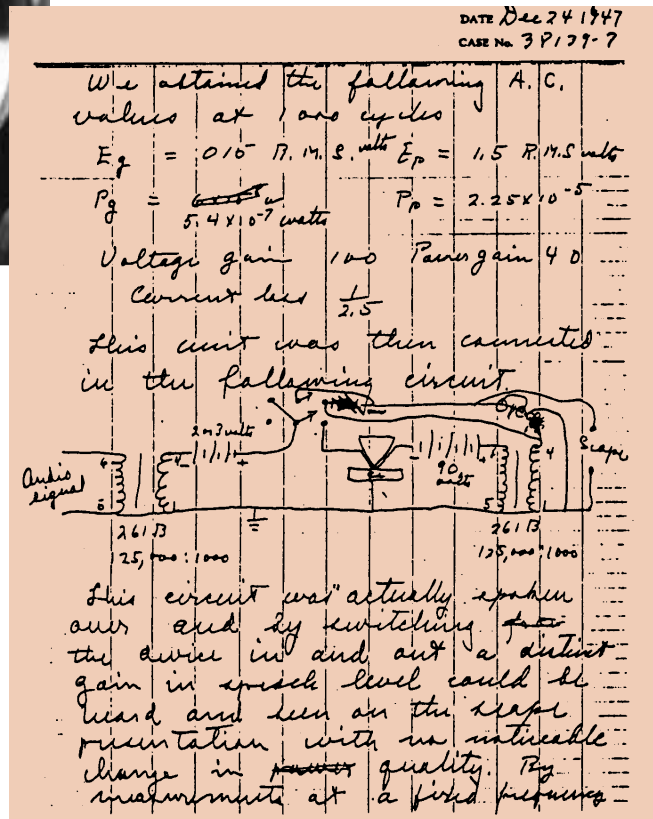 DATE Dec 24 1947
CASE No. 38139-7
We obtained the following A.C.
values at 1000 cycles
Eg = .015 R.M.S. volts Ep = 1.5 R.M.S volts
Pg = 5.4 x 10-7 watts Pp = 2.25 x 10-5
Voltage gain 100 Power gain 40
Current loss 1/2.5
This unit was then connected
in the following circuit.
2 or 3 volts
Audio signal
90 volts
Scope
261 B
125,000:1000
261 B
125,000:1000
This circuit was actually spoken
over and by switching
the device in and out a distinct
gain in speech level could be
heard and seen on the scope
presentation with no noticeable
change in quality. By
measurements at a fixed frequency